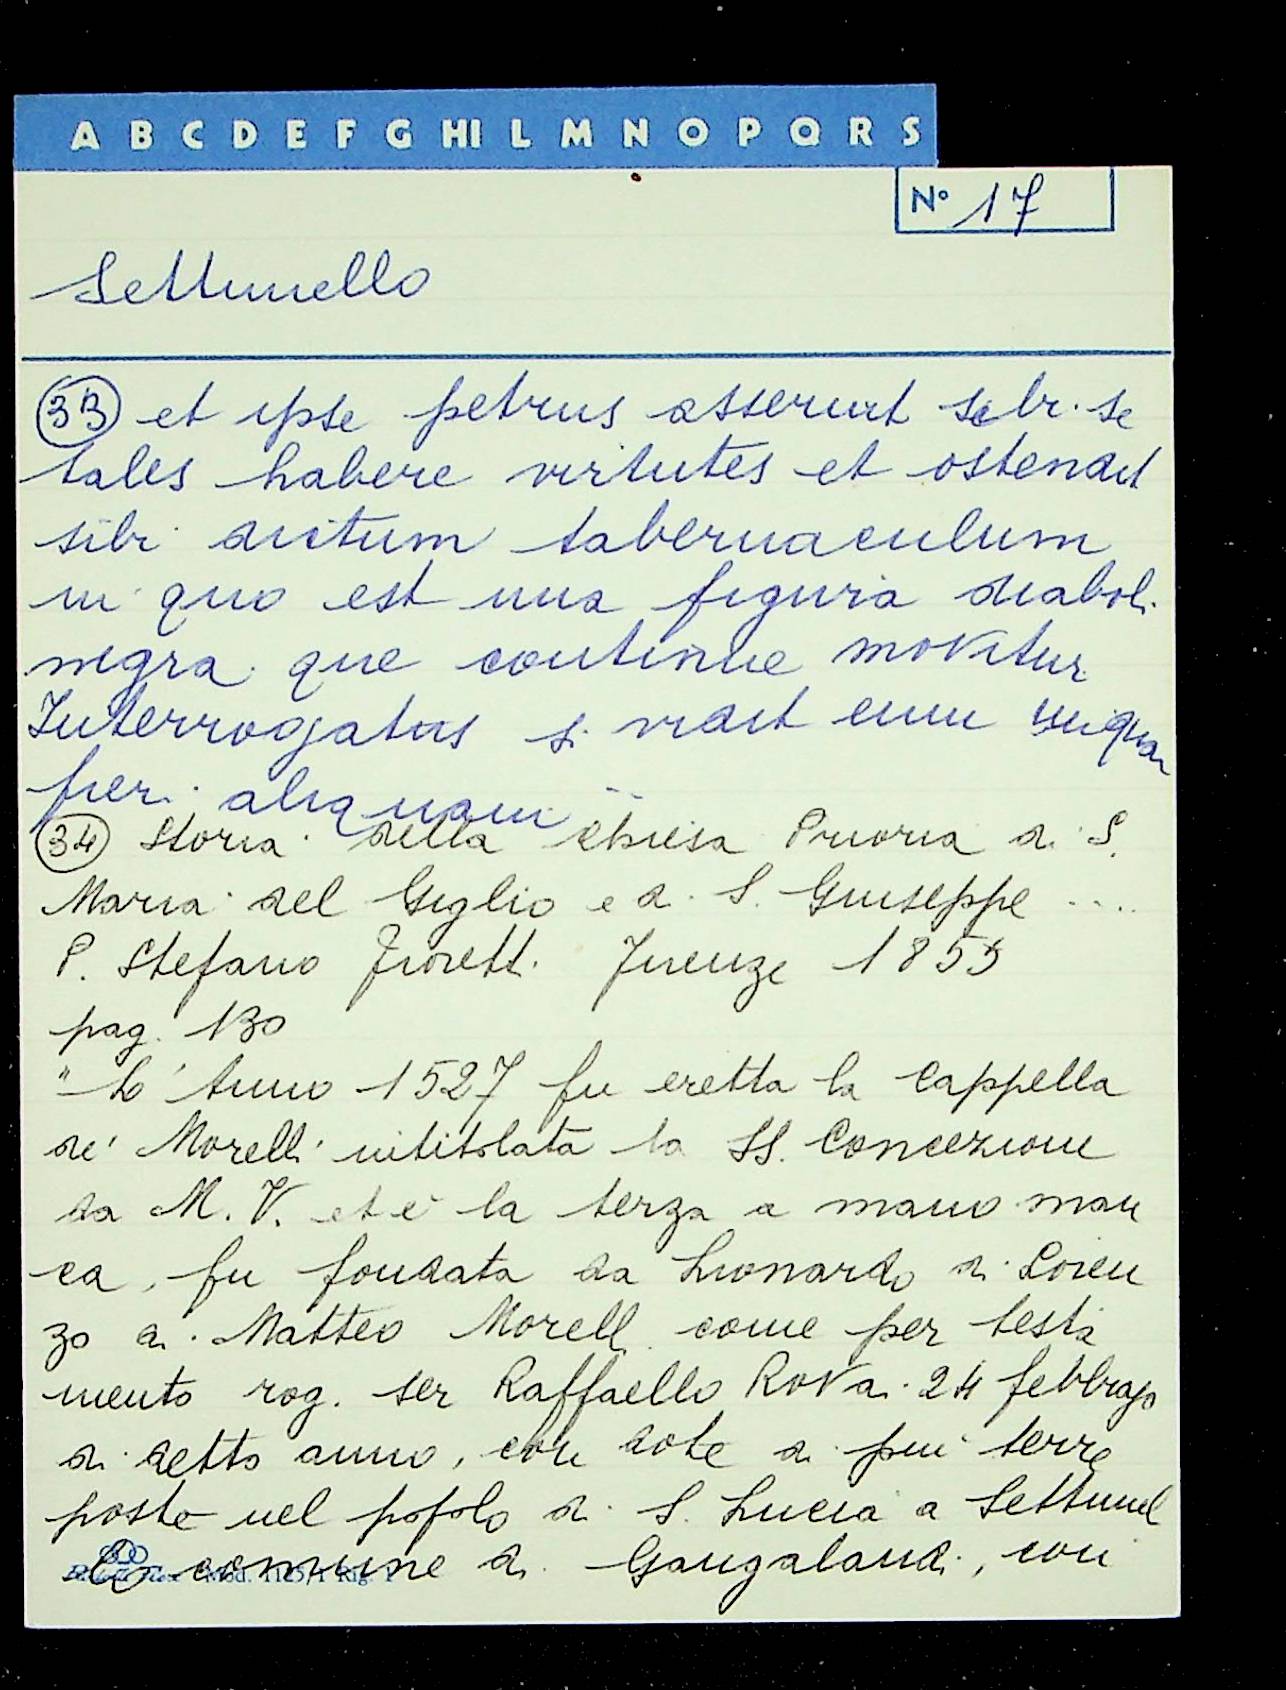 A B C D E F G HI L M N O P Q R S
N° 17
Settimello
33 et ipse petrus asseruit sibi se
tales habere virtutes et ostendit
sibi dictum tabernaculum
in quo est una figura diabol.
nigra que continue movitur
Interrogatus si vidit eum unquam
fieri aliquam
34 Storia della Chiesa Prioria di S.
Maria del Giglio e di S. Giuseppe ....
P. Stefano Fioretti. Firenze 1855
pag. 130
"L'Anno 1527 fu eretta la Cappella
de' Morelli intitolata la SS. Concezione
da M. V. et è la terza a mano man
ca, fu fondata da Lionardo di Loren
zo di Matteo Morelli come per testa
mento rog. ser Raffaello Rovai 24 febbraio
di detto anno, con dote di più terre
poste nel popolo di S. Lucia a Settimel
lo comune di Gangalandi, con
Mod. 1125/1 Rig. 1